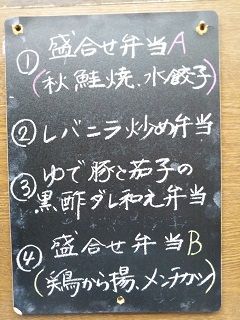 ① 盛合せ弁当A
(秋鮭焼、水餃子)
② レバニラ炒め弁当
③ ゆで豚と茄子の
黒酢ダレ和え弁当
④ 盛合せ弁当B
(鶏から揚、メンチカツ)